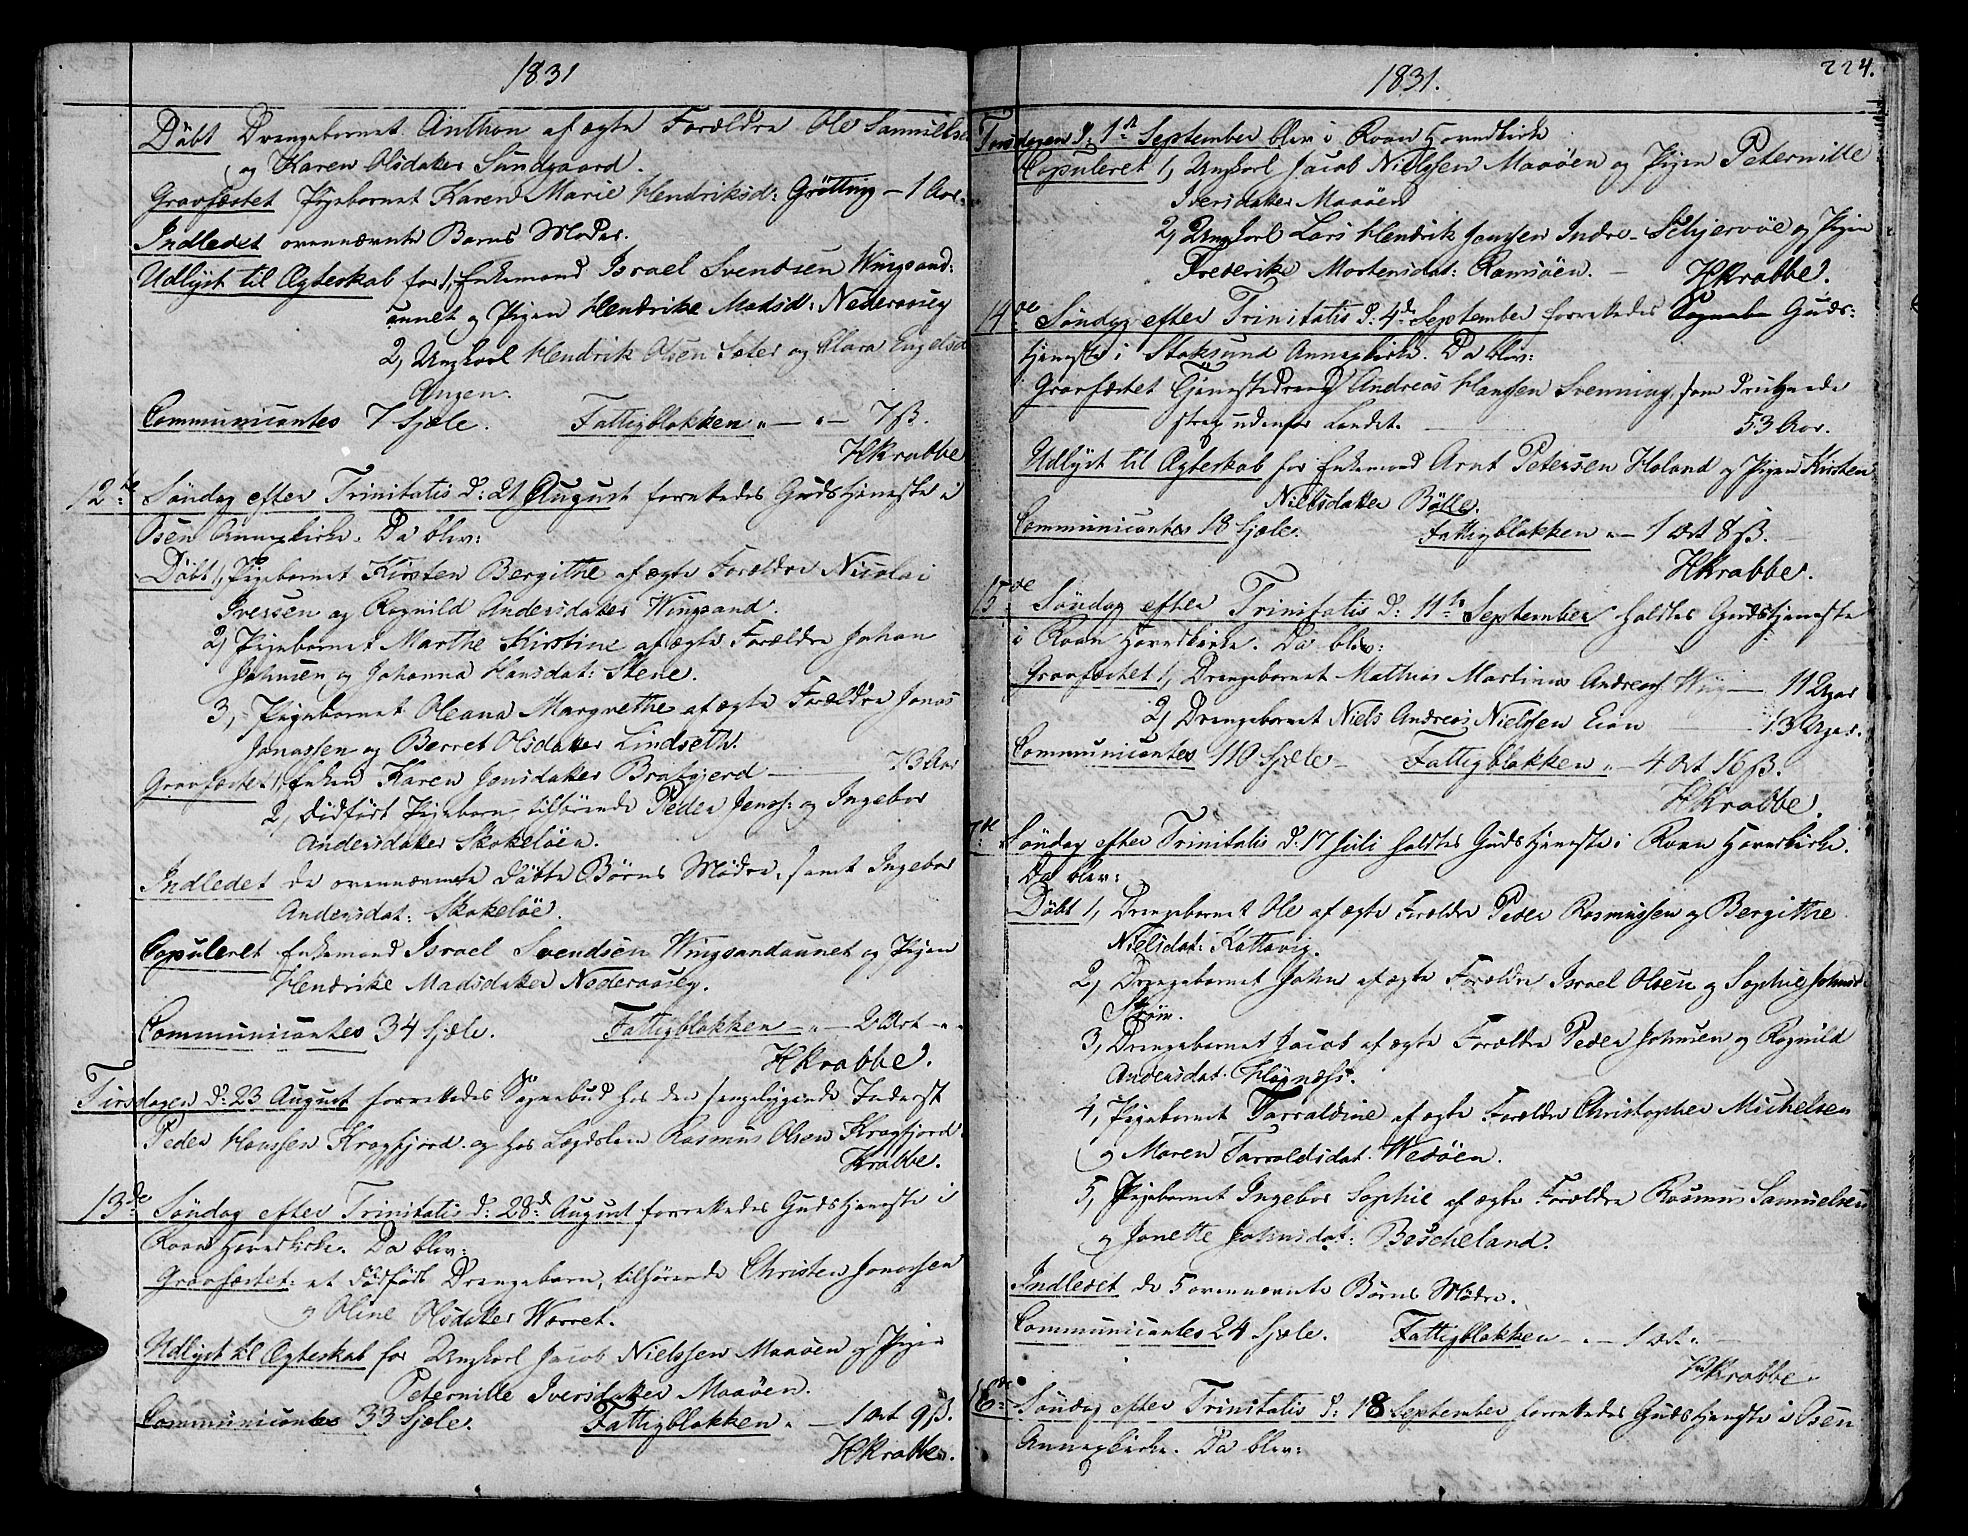 1831
Døbt Drengebarnet Anthon af ægte Forældre Ole Samuels
og Karen Olsdatter Sundgaard.
Gravfæstet Pigebarnet Karen Marie Hendriksd: Grøtting — 1 Aar.
Indledet ovennævnte Barns Moder.
Udlyst til Ægteskab for 1, Enkemand Israel Svendsen Wingsand:
aunet og Pigen Hendrike Madsd: Nederaasey
2, Ungkarl Hendrik Olsen Sæter og Clara Engelsd
Angen.
Communicantes 7 Sjæle. Fattigblokken „ — „ — 7 ß.
HKrabbe
12te Søndag efter Trinitatis d: 21 August forrettedes Gudstjeneste i
Osen Annexkirke. Da blev:
Døbt 1, Pigebarnet Kirsten Bergithe af ægte Forældre Nicolai
Iversen og Ragnild Andersdatter Wingsand.
2, Pigebarnet Marthe Kirstine af ægte Forældre Johan
Johnsen og Johanna Hansdat: Stene.
3, Pigebarnet Oleana Margrethe af ægte Forældre Jonas
Jonassen og Berret Olsdatter Lindseth.
Gravfæstet 1, Enken Karen Jonsdatter Bratgjerd — 73 Aar
2, Dødfødt Pigebarn tilhørende Peder Jenss: og Ingebor
Andersdatter Skakeløen.
Indledet de ovennævnte døbte Børns Mødre, samt Ingebor
Andersdat: Skakeløe.
Copuleret Enkemand Israel Svendsen Wingsandaunet og Pigen
Hendrike Madsdatter Nederaasey.
Communicantes 34 Sjæle. Fattigblokken — „ — 2 Ort — „
HKrabbe.
Tirsdagen d: 23 August forrettedes Sognebud hos den sengeliggende Inderst
Peder Hanssen Kragfjord og hos Lægdslem Rasmus Olsen Kragfjord
Krabbe.
13de Søndag efter Trinitatis d: 28d: August forrettedes Gudstjeneste i
Roan Hovedkirke. Da blev:
Gravfæstet: et dødfødt Drengebarn, tilhørende Christen Jonassen
og Oline Olsdatter Warret.
Udlyst til Ægteskab for Ungkarl Jacob Nielssen Maaøen og Pigen
Peternille Iversdatter Maaøen.
Communicantes 33 Sjæle. Fattigblokken „ — 1 Ort 9 ß.
HKrabbe.
1831.
224.
Torsdagen d: 1st September blev i Roan Hovedkirke
Copuleret 1, Ungkarl Jacob Nielssen Maaøen og Pigen Peternille
Iversdatter Maaøen
2, Ungkarl Lars Hendrik Janssen Indre-Skjervøe og Pigen
Frederike Mortensdat: Ramsøen. — HKrabbe.
14de Søndag efter Trinitatis d: 4d September forrettedes Guds:
tjeneste i Stoksund Annexkirke. Da blev:
Gravfæstet Tjenestedreng Andreas Hanssen Svenning, som druknede
strax udenfor Landet. — 53 Aar.
Udlyst til Ægteskab for Enkemand Arnt Petersen Haland og Pigen Kirsten
Nielsdatter Bølle.
Communicantes 18 Sjæle. Fattigblokken „ — 1 Ort 8 ß.
HKrabbe.
15de Søndag efter Trinitatis d: 11te September holdtes Gudstjeneste
i Roan Hovedkirke. Da blev:
Gravfæstet 1, Drengebarnet Mathias Martinus Andreas Wiig — 11 Uger
2, Drengebarnet Niels Andreas Nielssen Eian — 13 Uger.
Communicantes 110 Sjæle — Fattigblokken „ — 4 Ort 16 ß.
HKrabbe.
7de Søndag efter Trinitatis d: 17 Juli holdtes Gudstjeneste i Roan Hovedkirke.
Da blev:
Døbt 1, Drengebarnet Ole af ægte Forældre Peder Rasmussen og Bergithe
Nielsdat: Kattavig.
2, Drengebarnet John af ægte Forældre Israel Olsen og Sophie Johnsd
Strøm.
3, Drengebarnet Jacob af ægte Forældre Peder Johnsen og Ragnild
Andersdat. Høgnæss.
4, Pigebarnet Tarraldine af ægte Forældre Christopher Michelsen
og Maren Tarraldsdat. Wesøen.
5, Pigebarnet Ingebor Sophie af ægte Forældre Rasmus Samuelsen
og Janette Johnsdat: Bescheland.
Indledet de 5 ovennævnte Børns Mødre.
Communicantes 24 Sjæle. Fattigblokken — „ — 1 Ort „
HKrabbe.
16de Søndag efter Trinitatis d: 18 September forrettedes Gudstjeneste i Osen
Annexkirke. Da blev: